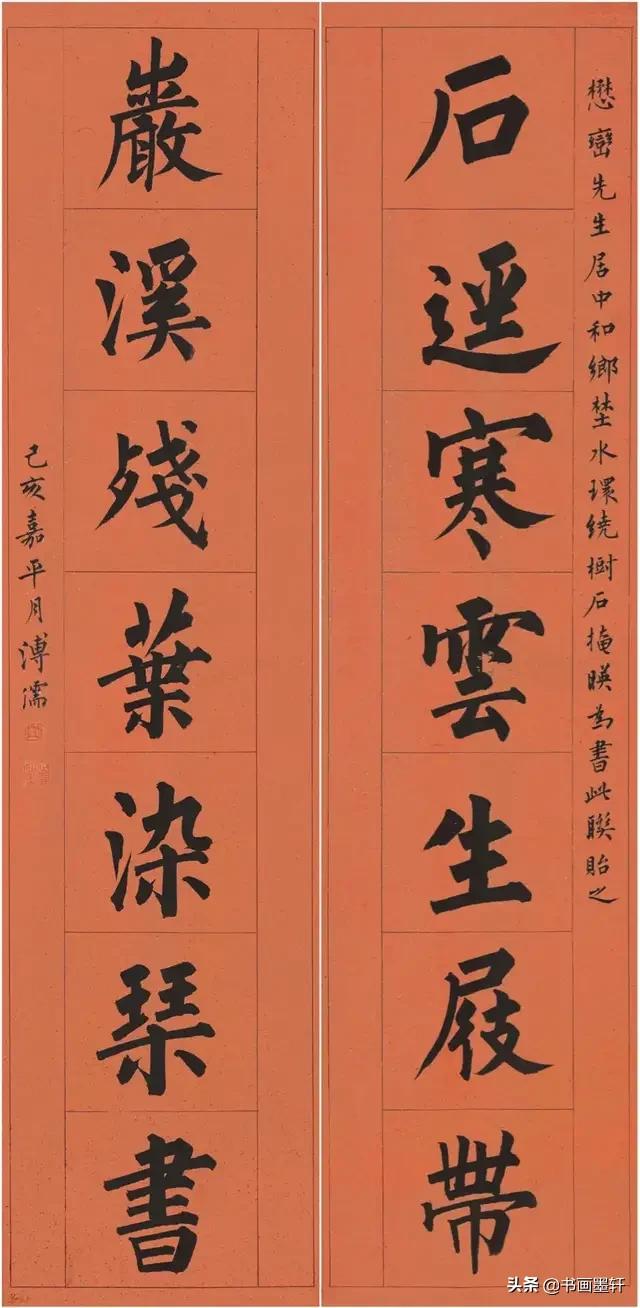 懋巒先生居中和鄉埜水環繞樹石掩暎為書此聯貽之
石逕寒雲生屐帶
巖溪殘葉染琴書
己亥嘉平月溥濡
头条 @书画墨轩